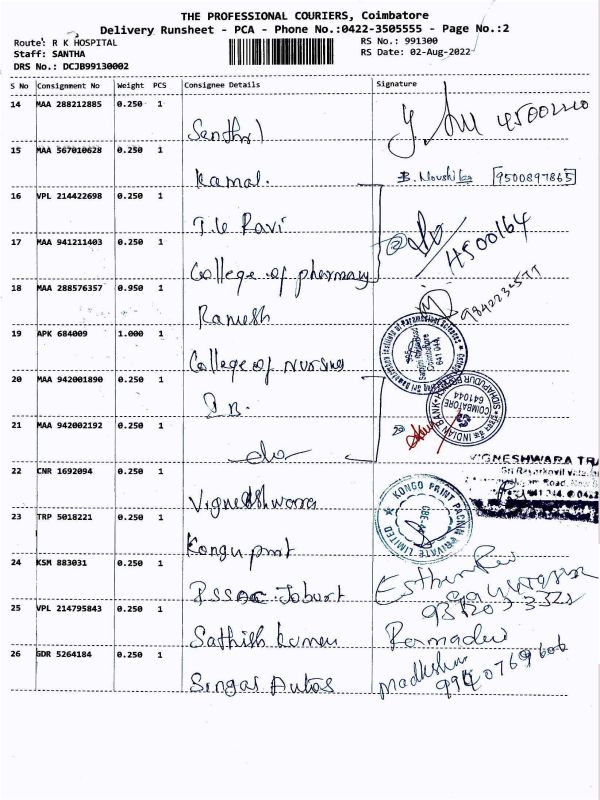 THE PROFESSIONAL COURIERS, Coimbatore
Delivery Runsheet - PCA - Phone No.:0422-3505555 - Page No.:2
Route: R K HOSPITAL
Staff: SANTHA
DRS No.: DCJB99130002
RS No.: 991300
RS Date: 02-Aug-2022
S No Consignment No Weight PCS Consignee Details Signature
14 MAA 288212885 0.250 1
Senthil
15 MAA 567010628 0.250 1
Kamal. 9500897865
16 VPL 214422698 0.250 1
T.V Ravi
17 MAA 941211403 0.250 1
College of pharmacy
18 MAA 288576357 0.950 1
Ramesh
19 APK 684009 1.000 1
College of Nursing
20 MAA 942001890 0.250 1
I.B.
INDIAN BANK
COIMBATORE
641044
21 MAA 942002192 0.250 1
VIGNESHWARA TRA
22 CNR 1692094 0.250 1
Vigneshwara
KONGO PRINT PACKING PRIVATE LIMITED
23 TRP 5018221 0.250 1
Kongu print
24 KSM 883031 0.250 1
25 VPL 214795843 0.250 1
Sathish kumar Ramadevi
26 GDR 5264184 0.250 1
Singai Autos